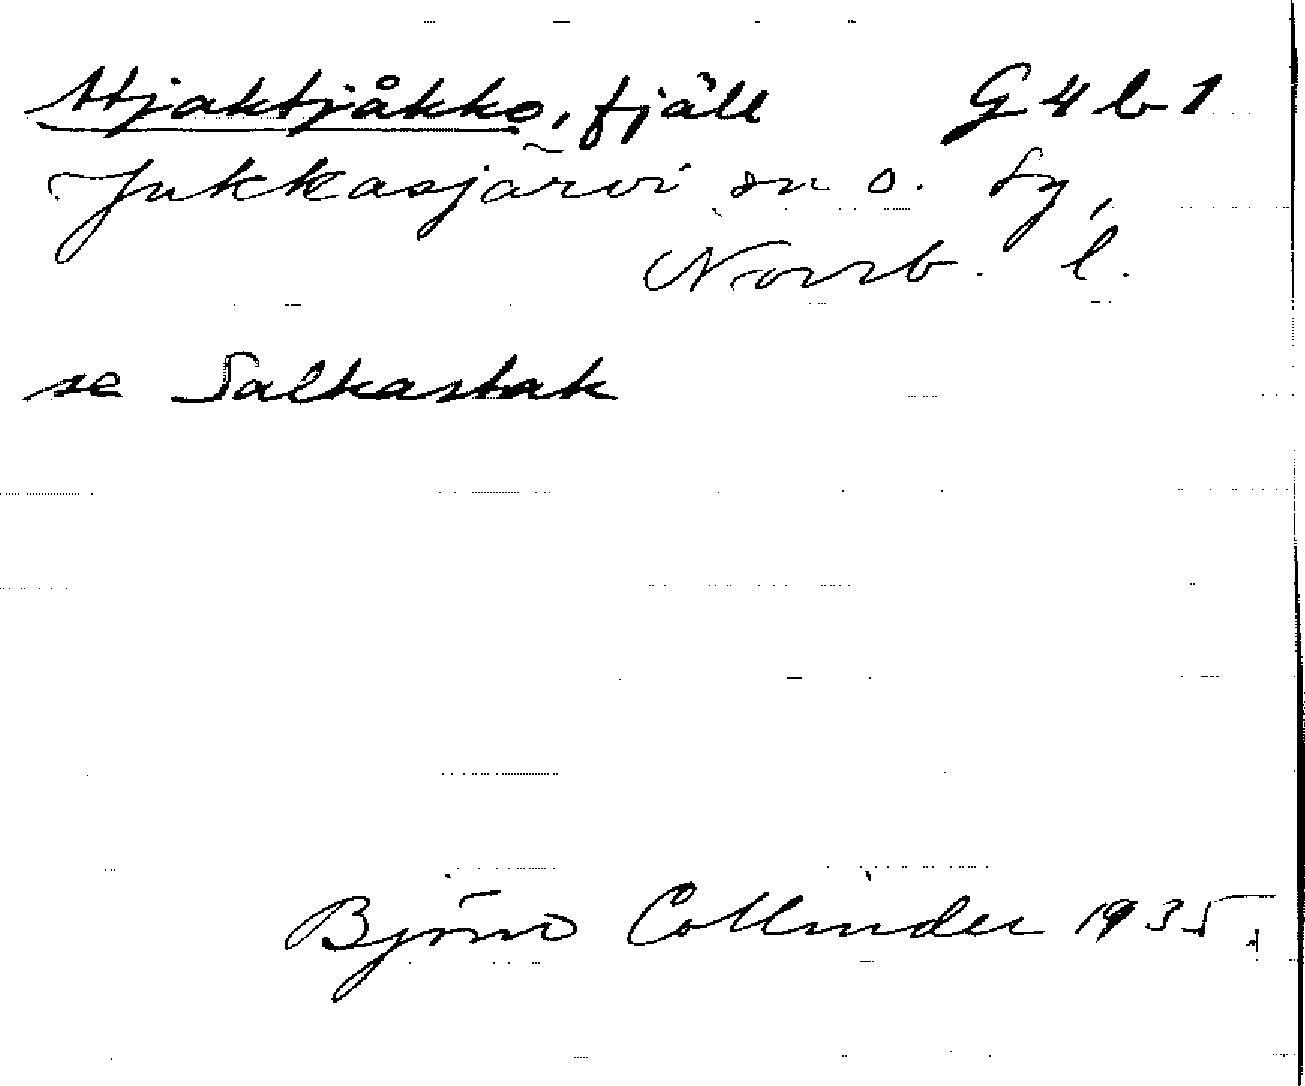 Hjaktjåkko, fjäll G 4 b 1
Jukkasjärvi sn o. ty,
Norrb. l.
se Salkastak
Björn Collinder 1935.